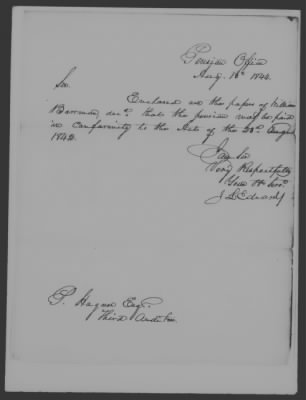 Pension Office
Augt. 18th 1842.
Sir.
Enclosed are the papers of William
Barrow, decd. that the pension may be paid
in conformity to the Act of the 23d August
1842.
I am Sir
Very Respectfully
Your Ob. Servt.
J L Edwards
P. Hagner Esqr.
Third Auditor.